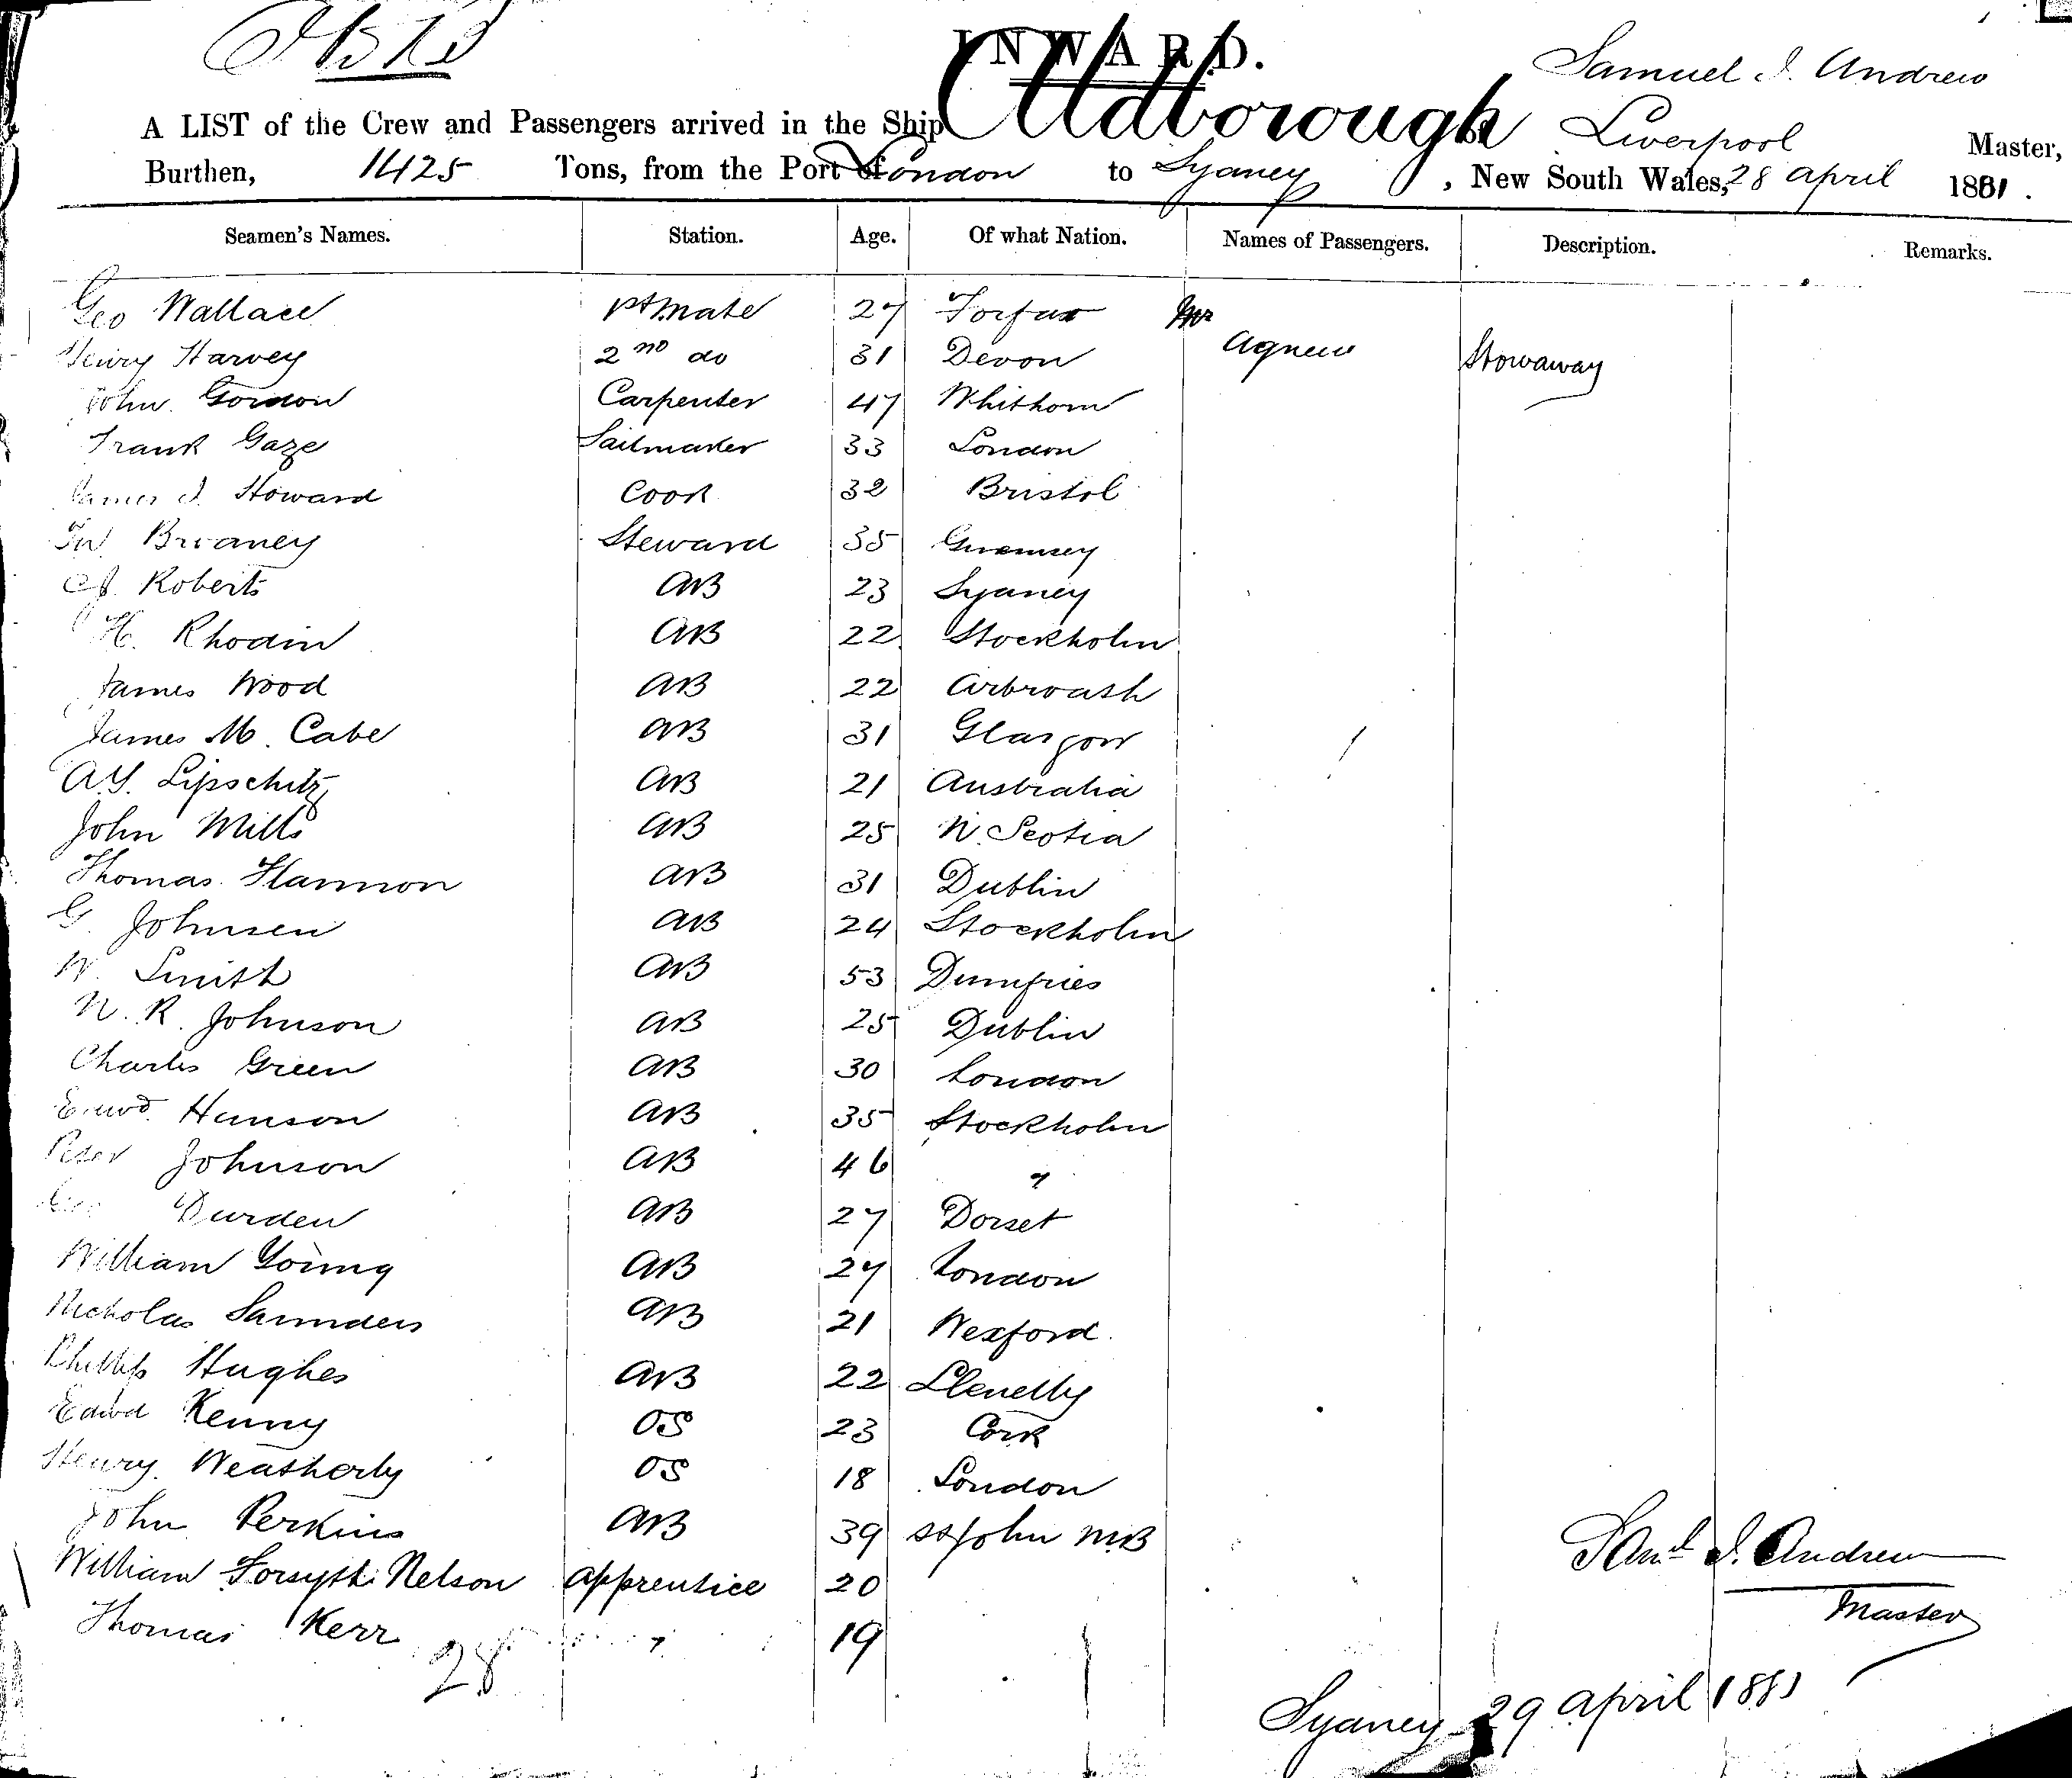 INWARD.
Samuel J. Andrew
A LIST of the Crew and Passengers arrived in the Ship Aldborough of Liverpool Master,
Burthen, 1425 Tons, from the Port of London to Sydney, New South Wales, 28 April 1881.
Seamen's Names. Station. Age. Of what Nation. Names of Passengers. Description. Remarks.
Geo Wallace 1st mate 27 Forfar Mr Agnew Stowaway
Henry Harvey 2nd do 31 Devon
John Gordon Carpenter 47 Whithorn
Frank Gaze Sailmaker 33 London
James J. Howard Cook 32 Bristol
Broaney Steward 35 Guernsey
Roberts AB 23 Sydney
H. Rhodin AB 22 Stockholm
James Wood AB 22 Arbroath
James Mc Cabe AB 31 Glasgow
A.Y. Lipschitz AB 21 Australia
John Mills AB 25 N. Scotia
Thomas Hannon AB 31 Dublin
G. Johnsen AB 24 Stockholm
W. Smith AB 53 Dumfries
N. R. Johnson AB 25 Dublin
Charles Green AB 30 London
Edwd. Hanson AB 35 Stockholm
Peter Johnson AB 46 "
Geo Durden AB 27 Dorset
William Young AB 27 London
Nicholas Saunders AB 21 Wexford.
Phillip Hughes AB 22 Llenelly
Edwd Kenny OS 23 Cork
Henry Weatherly OS 18 London
John Perkins AB 39 St John N.B
William Forsyth Nelson Apprentice 20
Thomas Kerr " 19
28
Saml J. Andrew
Master
Sydney 29 April 1881